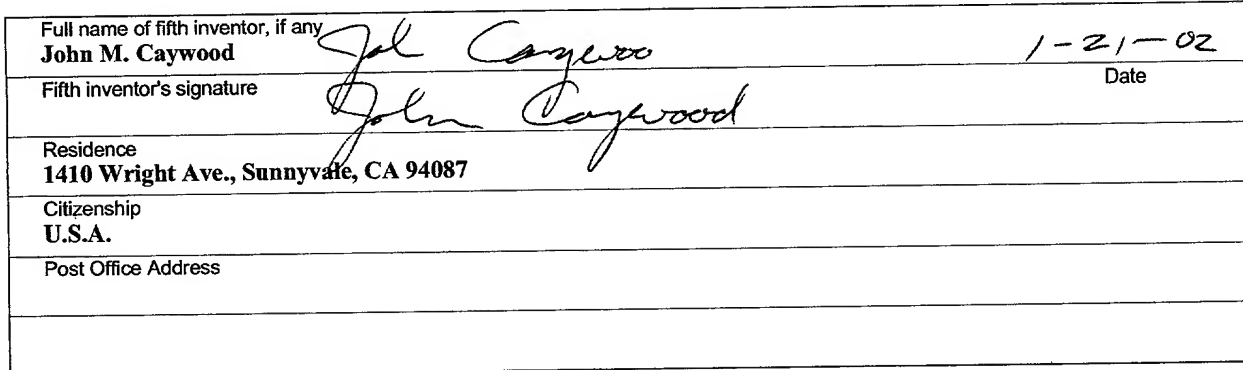 Full name of fifth inventor, if any
John M. Caywood Joh Caywoo 1-21-02
Fifth inventor's signature Date
John Caywood
Residence
1410 Wright Ave., Sunnyvale, CA 94087
Citizenship
U.S.A.
Post Office Address